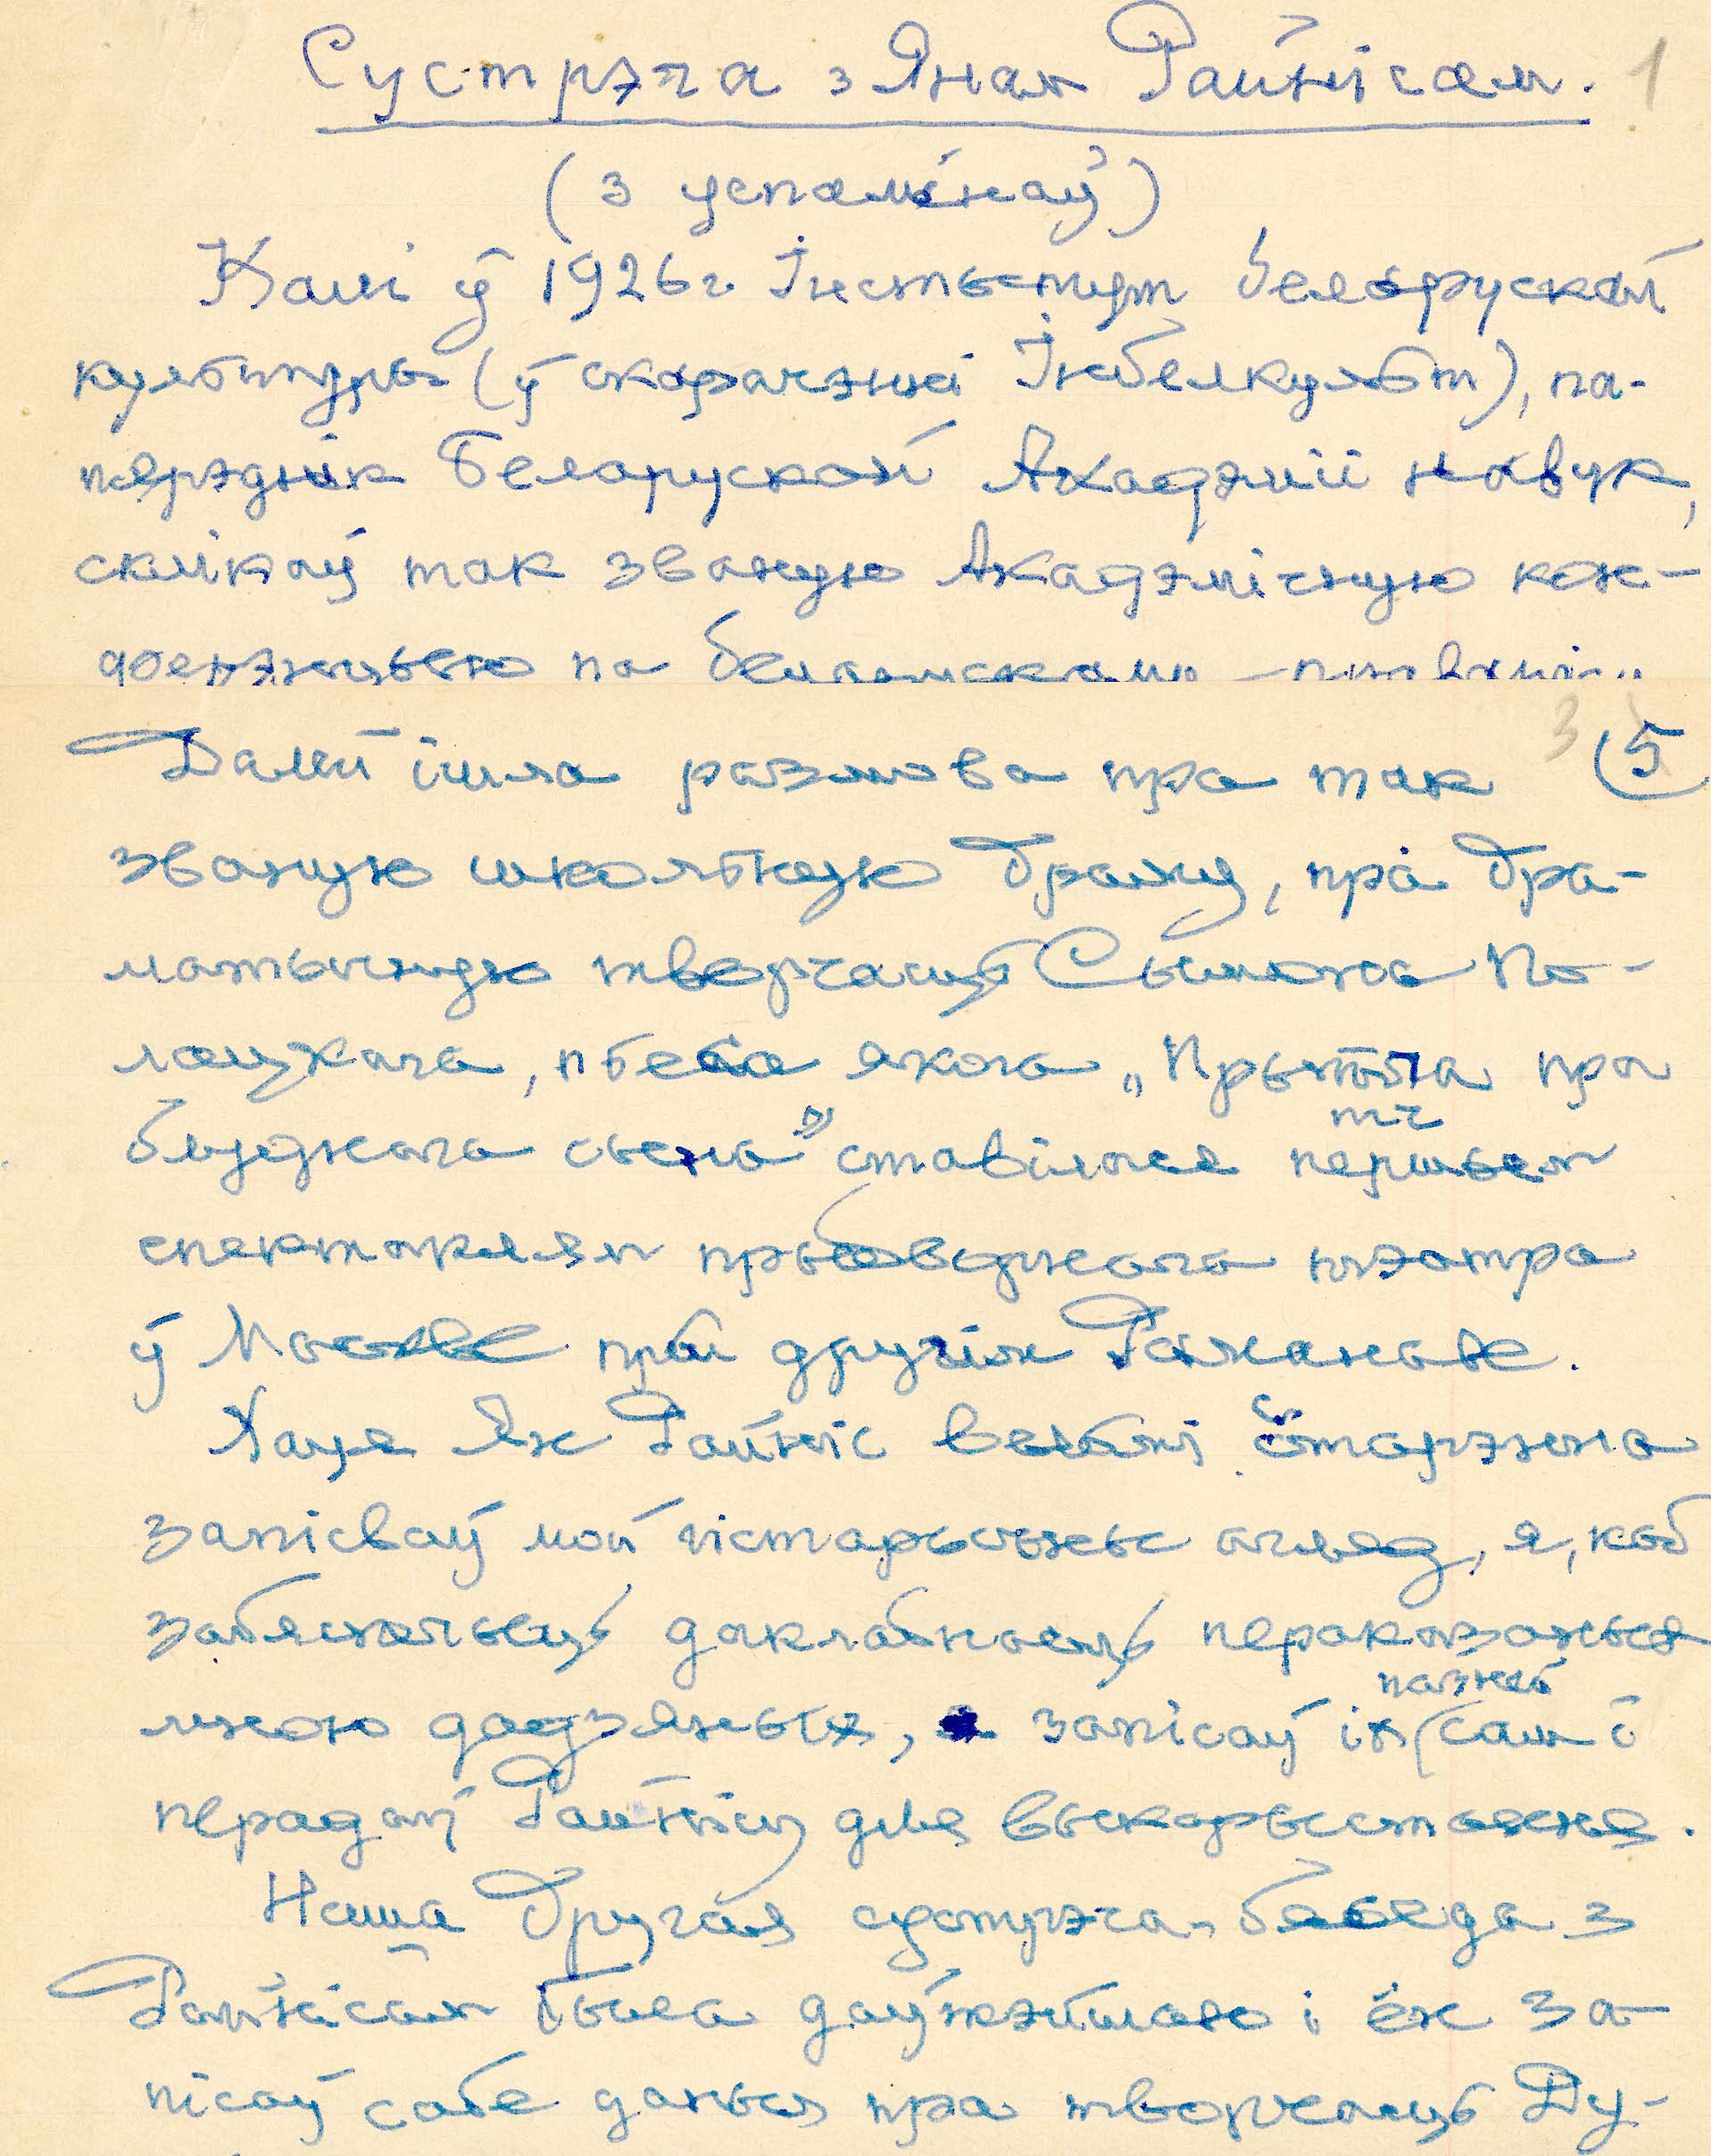 Сустрэча з Янам Райнісам. 1
(з успамінаў)
Калі ў 1926 г. Інстытут беларускай
культуры (ў скарачэнні Інбелкульт), па-
пярэднік Беларускай Акадэміі навук,
склікаў так званую Акадэмічную кан-
ферэнцыю па беларускаму правапісу
Далей ішла размова пра так 3 5
званую школьную драму, пра дра-
матычную творчасць Сымона По-
лацкага, п'еса якога „Прытча пра
тч
блуднага сына” ставілася першым
спектаклям прыдворнага тэатра
ў Маскве пры другім Раманаве.
Хаця Ян Райніс вельмі старанна
запісваў мой гістарычны агляд, я, каб
забяспечыць дакладнасць пераказаных
пазней
мною дадзяных, запісаў іх сам і
перадаў Райнісу для выкарыстання.
Наша другая сустрэча-бяседа з
Райнісам была даўжэйшаю і ён за-
пісаў сабе даныя пра творчасць Ду-